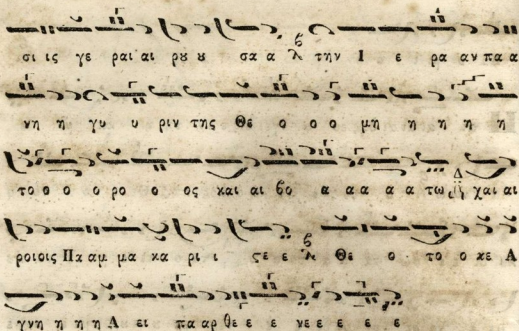 σι ις γε ραι αι ρου ου σα α την Ι ε ρα αν πα α
νη η γυ υ ριν της Θε ο ο ο μη η η η η
το ο ο ο ρο ο ος και αι βο α α α α α τω χαι αι
ροιοις Πα αμ μα κα ρι ι ςε ε Θε ο το ο κε Α
γνη η η η Α ει πα αρ θε ε ε νε ε ε ε ε